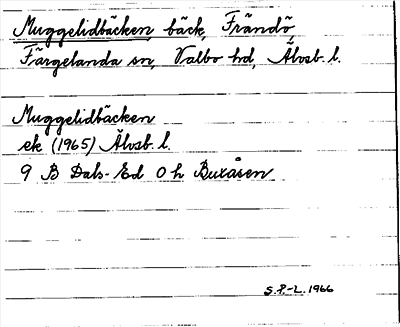 Muggelidbäcken, bäck, Frändö,
Färgelanda sn, Valbo hd, Älvsb. l.
Muggelidbäcken
ek (1965) Älvsb. l.
9 B Dals-Ed 0 h Buxåsen
S.P.-L. 1966